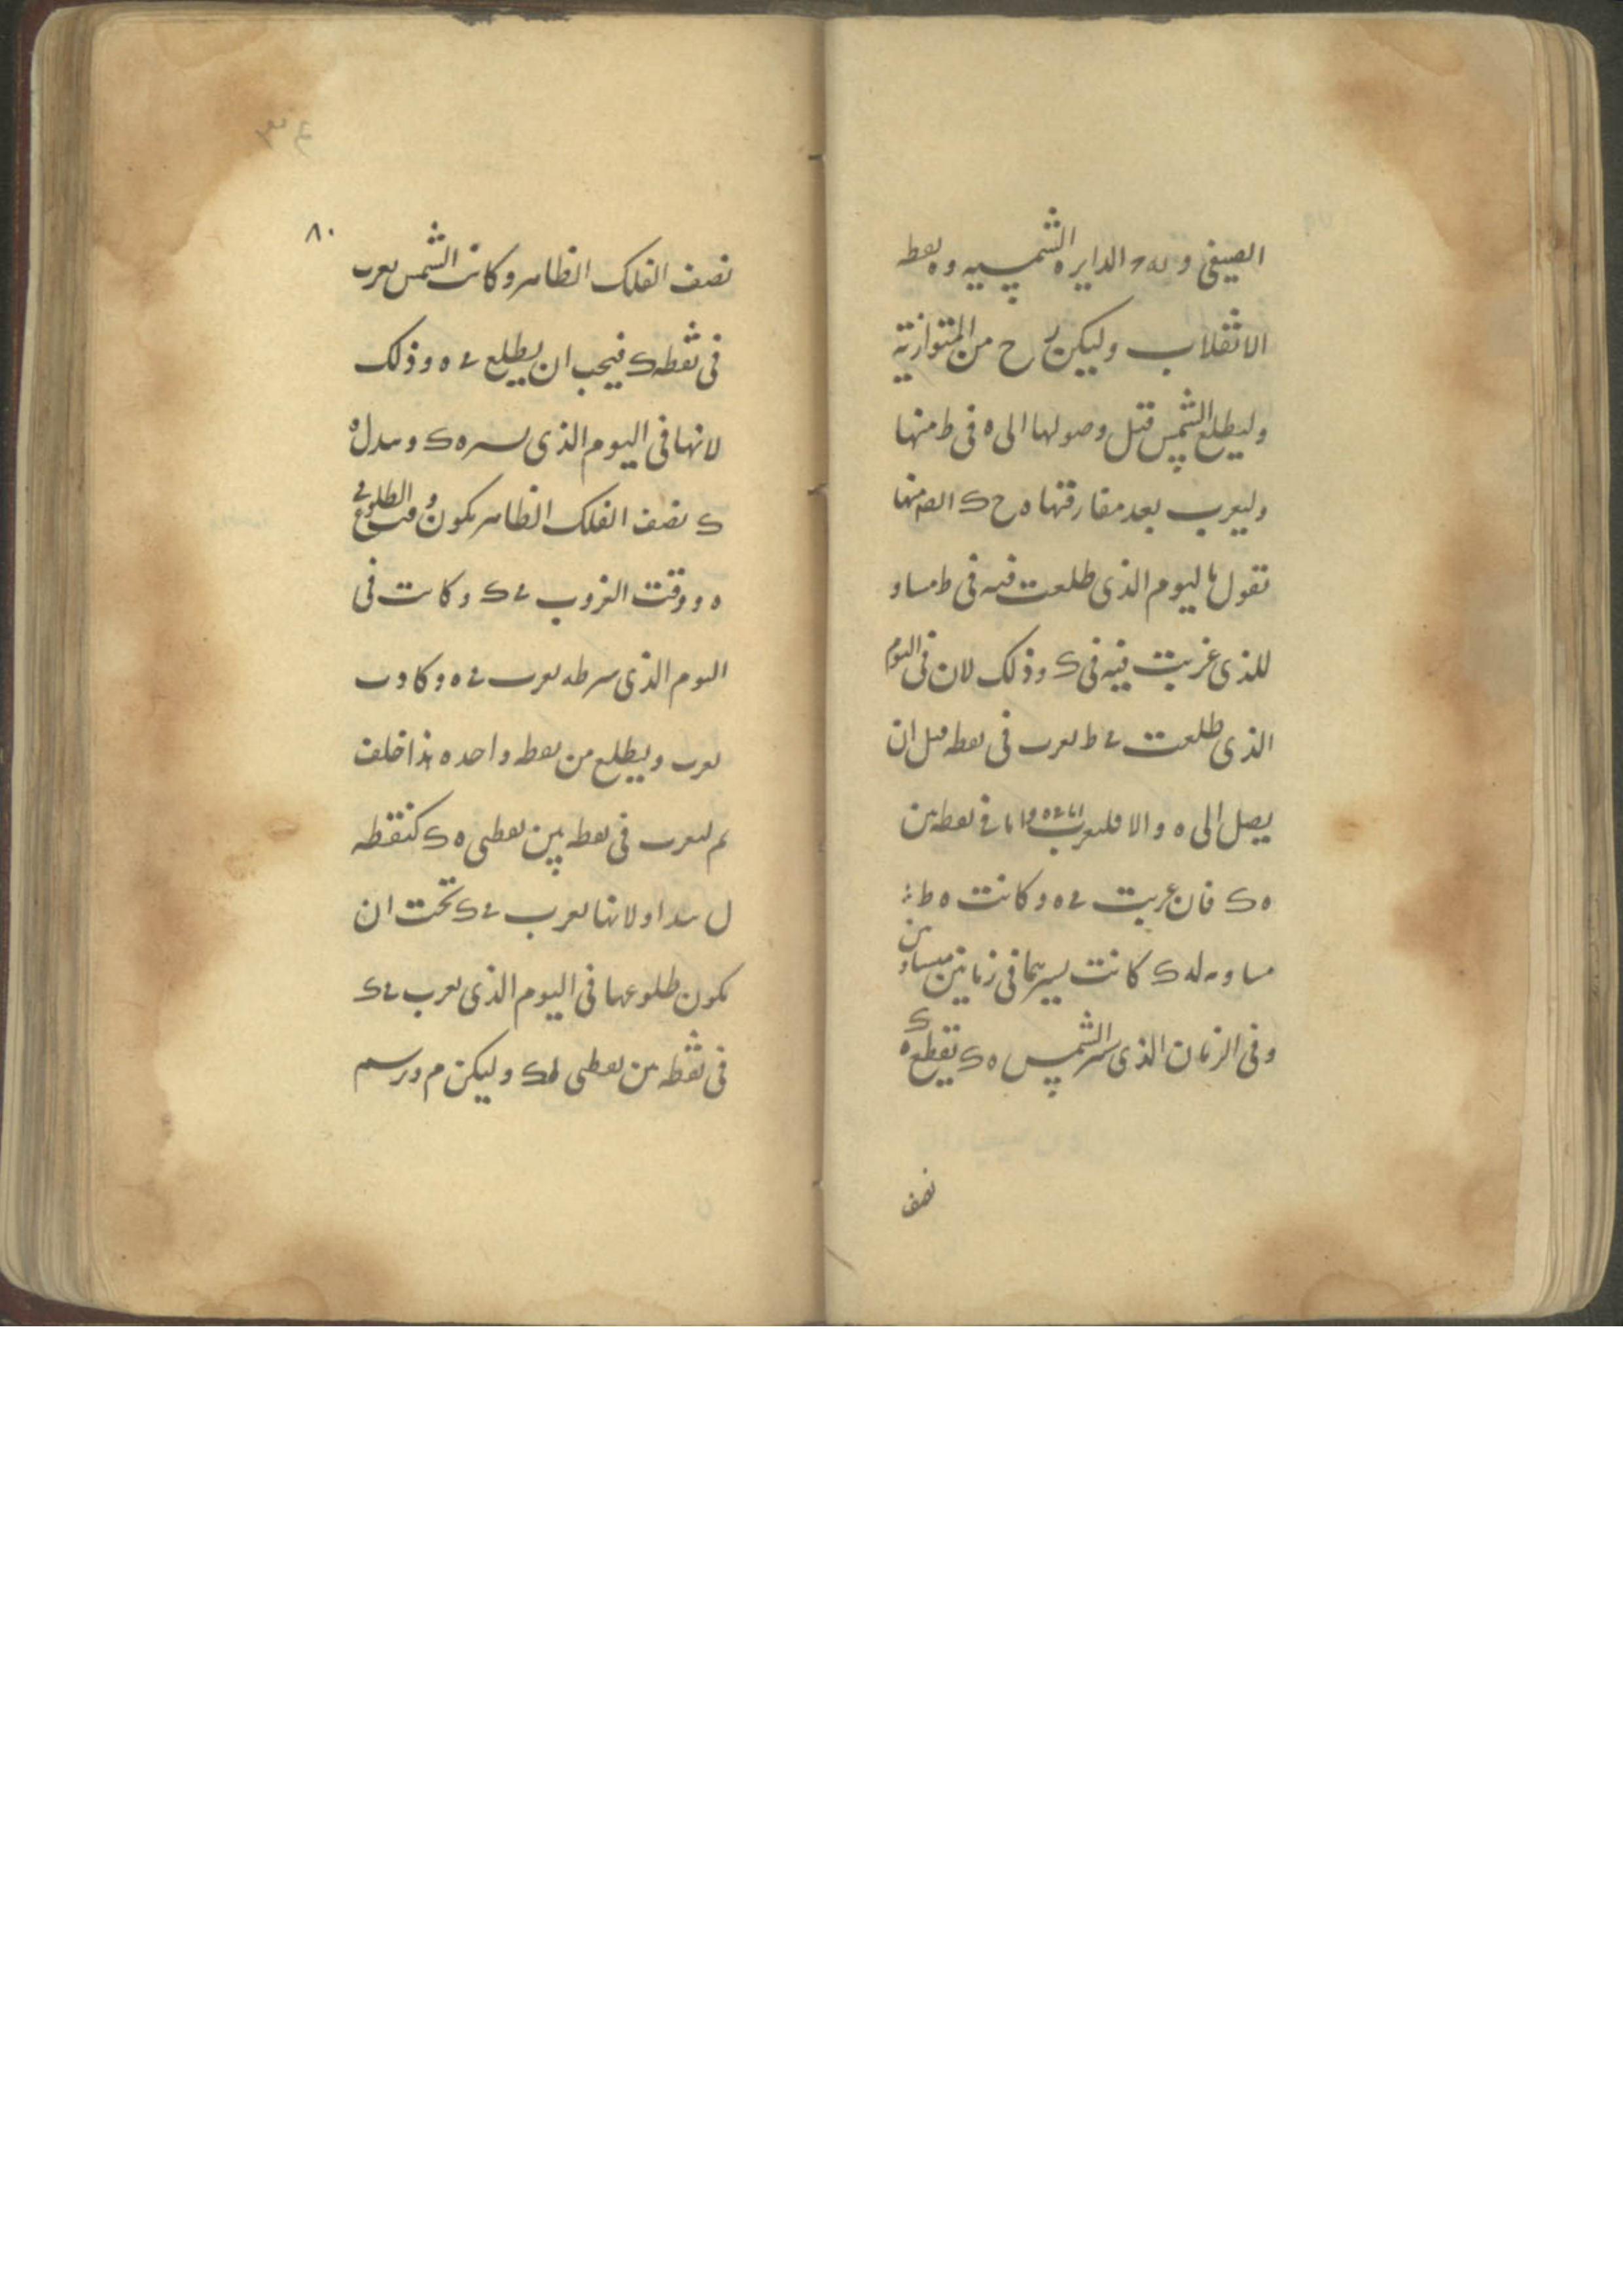 الصيفى و له ر الدايره الشمسيه و ه نقطه
الانقلاب وليكن ر ح من المتوازيه
وليطلع الشمس قبل وصولها الى ه فى ط منها
وليغرب بعد مفارقتها ه ح ك منها
نقول فاليوم الذى طلعت فيه فى ط مساو
للذى غربت فيه فى ك وذلك لان فى اليوم
الذى طلعت فى ط يغرب فى نقطه قبل ان
يصل الى ه والا فليغرب اما فى ه واما فى نقطه بين
ه ك فان غربت فى ه وكانت ه ط
مساويه له ك كانت يسيرهما فى زمانين متساويين
وفى الزمان الذى يسير الشمس ه ك تقطع ه ك
نصف
٨٠
نصف الفلك الظاهر وكانت الشمس يغرب
فى نقطه ك فيجب ان يطلع فى ه وذلك
لانها فى اليوم الذى يسير ه ك ويبدل ه
ك نصف الفلك الظاهر يكون وقت الطلوع فى
ه ووقت الغروب فى ك وكانت فى
اليوم الذى يسير ط ه يغرب فى ه وكادت
يغرب ويطلع من نقطه واحده هذا خلف
ثم ليغرب فى نقطه بين نقطتى ه ك كنقطه
ل ولانها يغرب فى ك تحت ان
يكون طلوعها فى اليوم الذى يغرب فى ك
فى نقطه بين نقطتى ل ك وليكن م ورسم